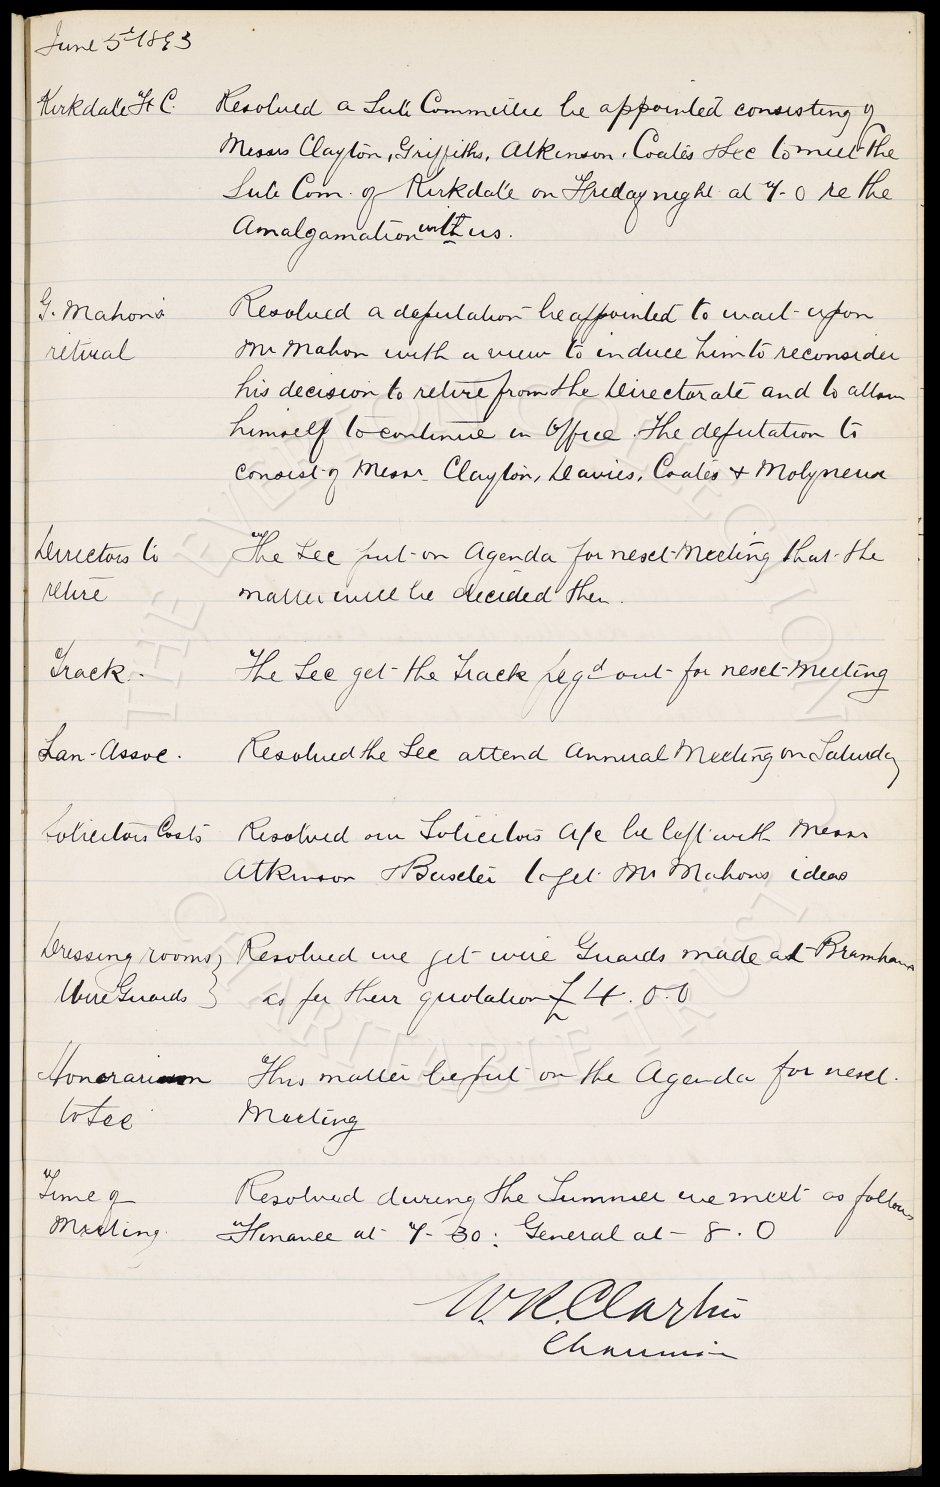 June 5th 1893
Kirkdale F C. Resolved a Sub Committee be appointed consisting of
Messrs Clayton, Griffiths, Atkinson, Coates & Sec to meet the
Sub Com. of Kirkdale on Friday night at 7-0 re the
Amalgamation with us.
G. Mahon's Resolved a deputation be appointed to wait upon
retiral Mr Mahon with a view to induce him to reconsider
his decision to retire from the Directorate and to allow
himself to continue in Office. The deputation to
consist of Messrs Clayton, Davies, Coates & Molyneux
Directors to The Sec put on Agenda for next Meeting that the
retire matter will be decided then.
Track. The Sec get the Track pegd out for next Meeting
Lan-Assoc. Resolved the Sec attend Annual Meeting on Saturday
Solicitors Costs Resolved our Solicitors A/c be left with Messrs
Atkinson & Baxter to get Mr Mahons ideas
Dressing rooms Resolved we get wire Guards made at Bramhams
Wire Guards as per their quotation £4.0.0
Honorarium This matter be put on the Agenda for next
to Sec Meeting
Time of Resolved during the Summer we meet as follows
Meeting. Finance at 7-30: General at 8.0
W.R. Clayton
Chairman
THE EVERTON COLLECTION
CHARITABLE TRUST